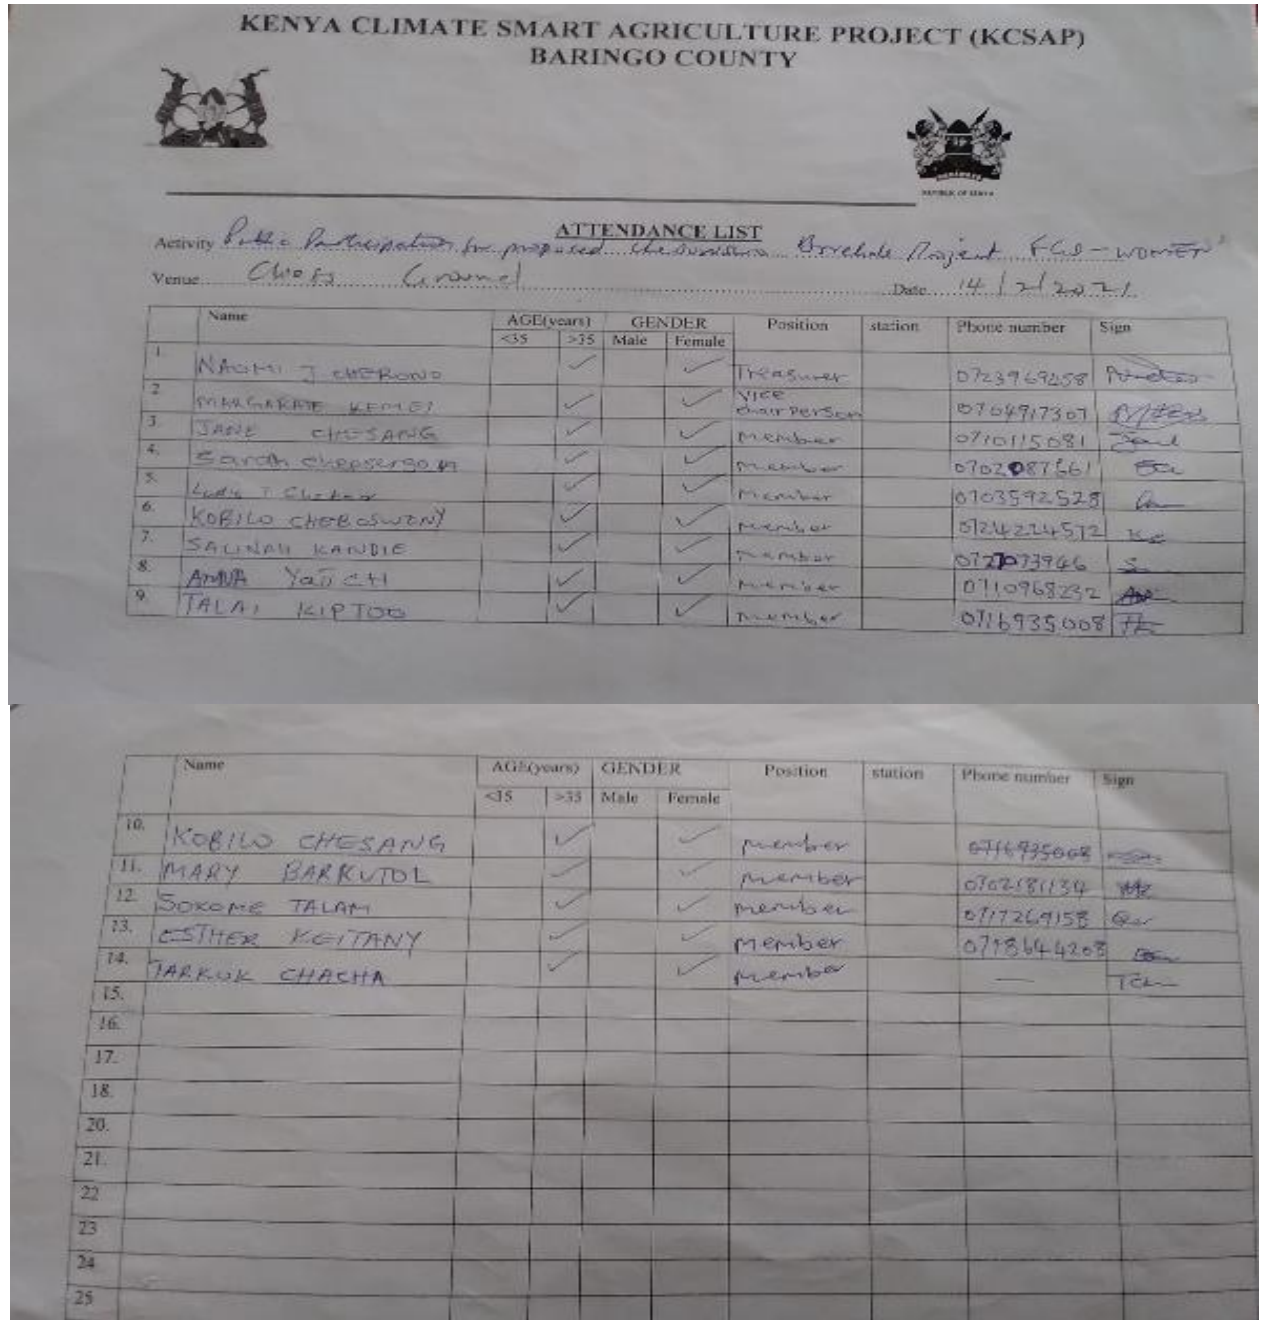 KENYA CLIMATE SMART AGRICULTURE PROJECT (KCSAP)
BARINGO COUNTY
REPUBLIC OF KENYA
ATTENDANCE LIST
Activity Public Participation for proposed Borehole Project FGD - WOMEN
Venue Chiefs Ground Date 14/2/2021
Name AGE(years) GENDER Position station Phone number Sign
<35 >35 Male Female
1. NAOMI J CHERONO Treasurer 0723969258
2 MARGARATE KEMEI vice chairperson 0704917307
3. JANE CHESANG member 0710115081
4. Sarah Chepsergon member 0702087661
5. member 0703592528
6. KOBILO CHEBOSWONY member 0724224572
7. SALINAH KANDIE member 0727073946
8. ANNA member 0710968232
9. TALAI KIPTOO member 0716935008
Name AGE(years) GENDER Position station Phone number Sign
<35 >35 Male Female
10. KOBILO CHESANG member 0716935008
11. MARY BARKUTOL member 0702181134
12. SOKOME TALAM member 0717269158
13. ESTHER KEITANY member 0718644208
14. TARKOK CHACHA member —
15.
16.
17.
18.
20.
21.
22
23
24
25